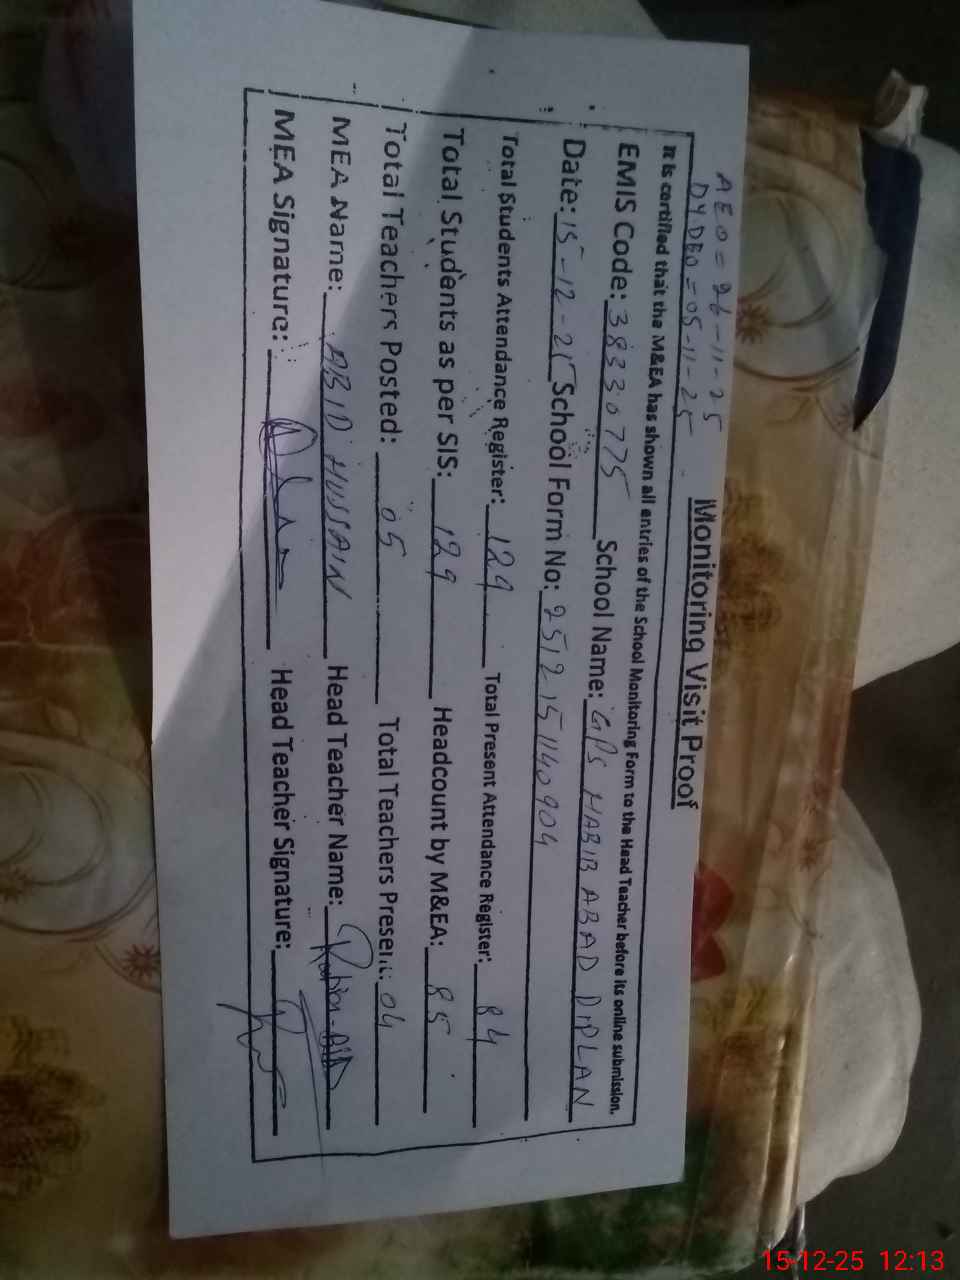 AEO = 26-11-25
DYDEO = 05-11-25
Monitoring Visit Proof
It is certified that the M&EA has shown all entries of the School Monitoring Form to the Head Teacher before its online submission.
EMIS Code: 38330775 School Name: GPS HABIB ABAD DIPLAN
Date: 15-12-25 School Form No: 251215140904
Total Students Attendance Register: 129 Total Present Attendance Register: 84
Total Students as per SIS: 129 Headcount by M&EA: 85
Total Teachers Posted: 05 Total Teachers Present: 04
MEA Name: ABID HUSSAIN Head Teacher Name:
MEA Signature: Head Teacher Signature:
15-12-25 12:13